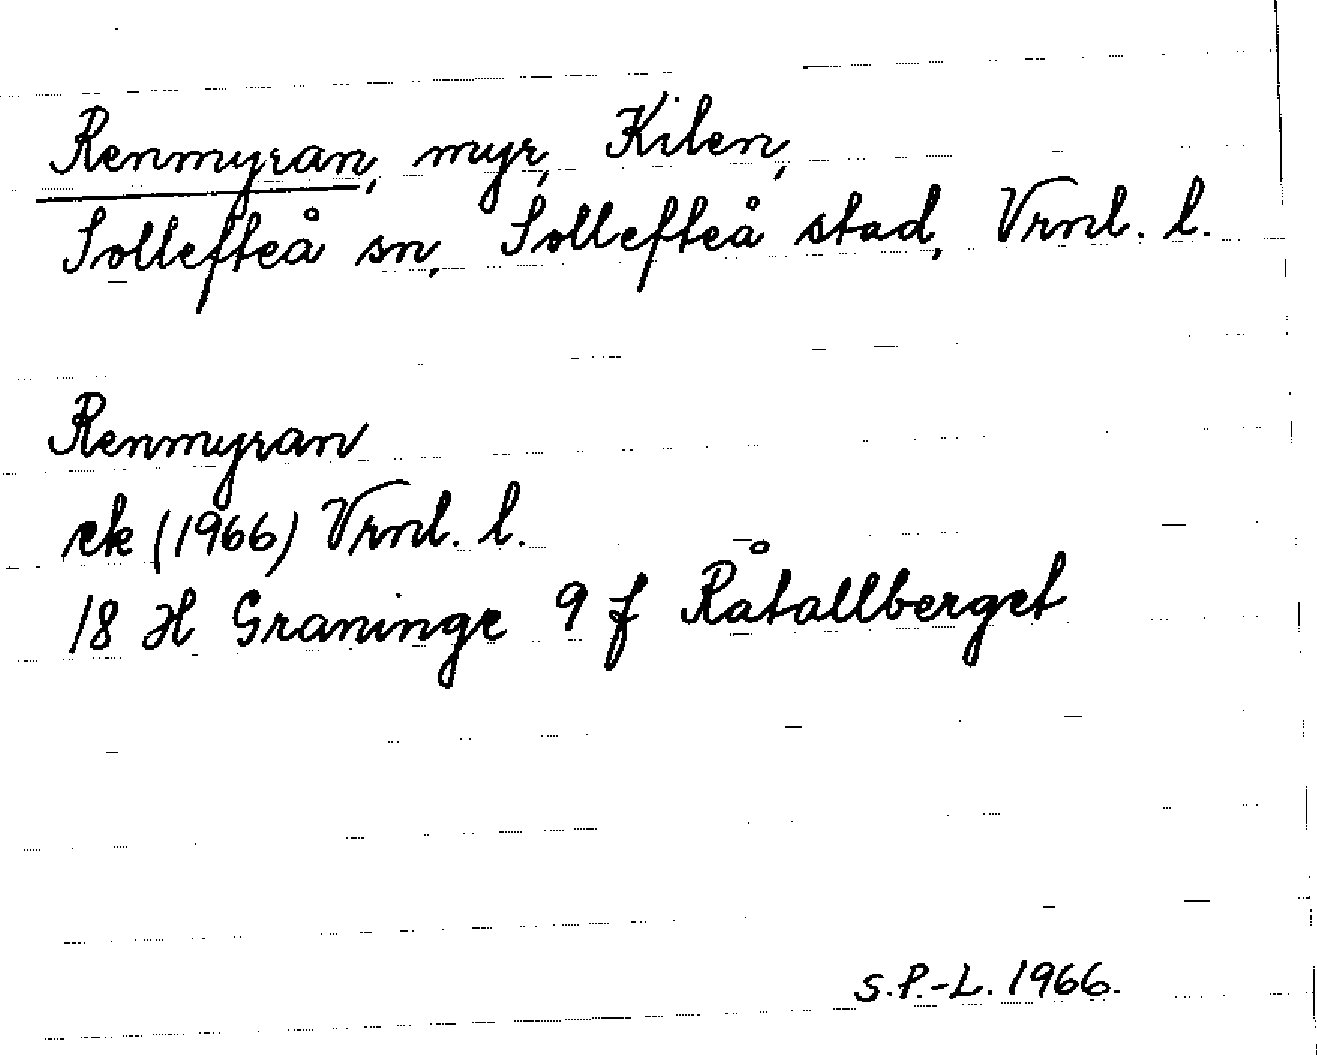 Renmyran, myr, Kilen,
Sollefteå sn, Sollefteå stad, Vrnl. l.
Renmyran
ek (1966) Vrnl. l.
18 H Graninge 9 f Råtallberget
S.P.-L. 1966.